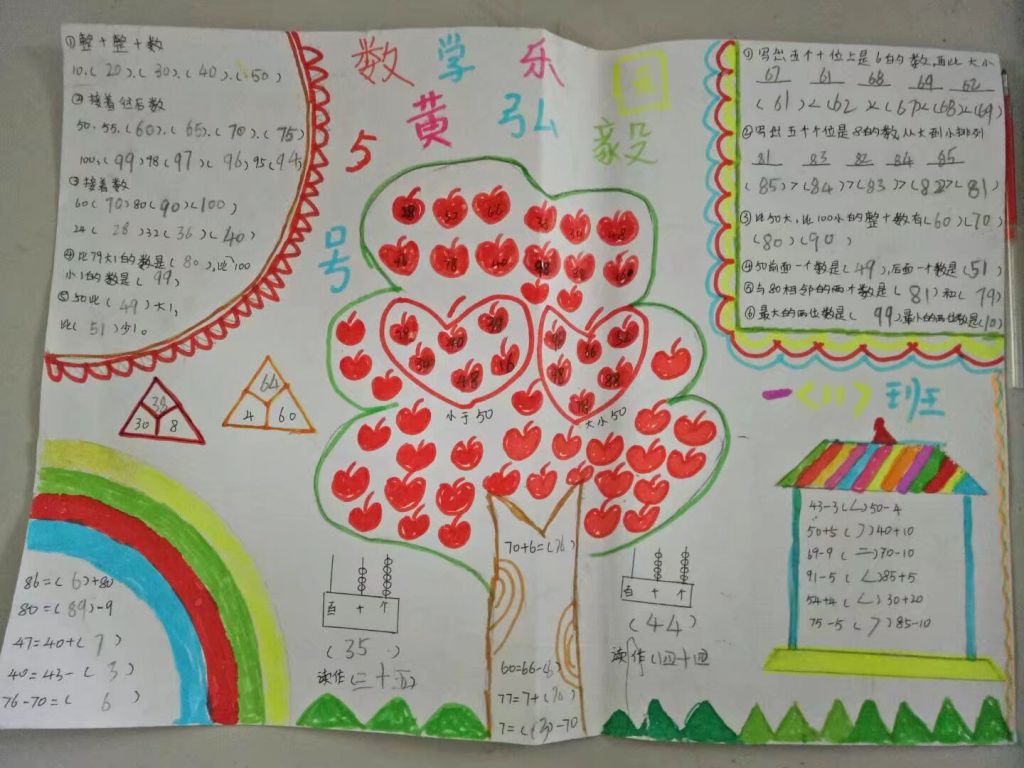 数学乐园
黄弘毅
5号
①整十整十数
10.( 20 ).( 30 ).( 40 ).( 50 )
②接着往后数
50.55.(60).( 65).( 70 ).( 75 )
100.( 99 ) 98 ( 97 ) ( 96 ) 95 ( 94 )
③接着数
60 ( 70 ) 80 ( 90 ) (100)
24 ( 28 ) 32 ( 36 ) ( 40 )
④比79大1的数是( 80 ),比100
小1的数是( 99 )
⑤50比( 49 )大1,
比( 51 )少1。
①写出五个十位上是6的数,再比大小
67 61 68 69 62
(61)<(62)<(67)<(68)<(69)
②写出五个个位是8的数,从大到小排列
81 83 82 84 85
(85)>(84)>(83)>(82)>(81)
③比50大,比100小的整十数有(60)(70)
(80)(90)
④50前面一个数是( 49 ),后面一个数是( 51 )
⑤与80相邻的两个数是( 81 )和( 79 )
⑥最大的两位数是( 99 )最小的两位数是(10)
小于50
大小50
38
30 8
64
4 60
一(11)班
43-3(<)50-4
50+5(>)40+10
69-9(=)70-10
91-5(<)85+5
54+4(<)30+20
75-5(>)85-10
86=( 6 )+80
80=( 89 )-9
47=40+( 7 )
40=43-( 3 )
76-70=( 6 )
百 十 个
( 35 )
读作(三十五)
70+6=(76)
60=66-(6)
77=7+(70)
百 十 个
( 44 )
读作(四十四)